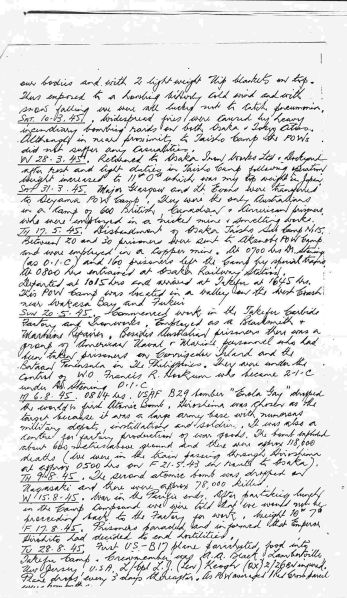 our bodies and with 2 lightweight thin blankets on top.
Thus exposed to a howling bitterly cold wind and with
snow falling we were all lucked not to catch pneumonia.
SAT. 10-03.45. Widespread fires were caused by heavy
incendiary bombing raids on both Osaka & Tokyo Cities.
Although in near proximity to Taisho Camp the POWs
did not suffer any casualties.
W 28-3.45. Returned to Osaka Iron Works Ltd. Dockyard
after rest and light duties in Taisho Camp following
weight increased to which was my top weight in Japan
SAT 31.3.45. Major Glasgow and Lt Evans were transferred
to Oeyama POW Camp. They were the only Australians
in a Camp of 600 British, Canadian & American prisoners
who were employed in a nickel mine & smelting works.
TH 17.5.45. Disbandment of Osaka Taisho Sub Camp
Between 20 and 30 prisoners were sent to Akenobe POW Camp
and were employed in a copper mine. At 0700 hrs
(as O.I.C) and 160 prisoners left the Camp by special trams
At 0800 hrs entrained at Osaka Railway Station
Departed at 1015 hrs and arrived at Takefu at 1645 hrs.
This POW Camp was located in a valley on the West Coast
near Wakasa Bay and Fukui
SUN 20.5.45. Commenced work in the Takefu Carbide
Factory and Ironworks. Employed as a Blacksmith &
Repairs. Besides Australian prisoners there was a
group of American Naval & Marine personnel who had
been taken prisoners on Corregidor Island and the
Bataan Peninsula in the Philippines. They were under the
control of WO Francis R. who became 2-I-C
under O.I.C
M 6.8.45. 0814 hrs. USAF B29 bomber "Enola Gay" dropped
the world's first Atomic Bomb. Hiroshima was chosen as the
target because it was a large army base with numerous
military depots, installations and soldiers. It was also a
centre for factory production of war goods. The bomb exploded
about 600 metres above ground and there were approx 118,000
deaths (we were in the train passing through Hiroshima
at approx 0500 hrs on F 21.5.43 on route to Osaka).
TH 9.8.45. The second atomic bomb was dropped on
Nagasaki and there were approx 78,000 killed.
W 15.8.45. War in the Pacific ends. After parading
in the Camp Compound we were told that we would not be
proceeding back to the Factory to work. Weight
F 17.8.45. Prisoners paraded and informed that Emperor
Hirohito had decided to end hostilities.
TU 28.8.45. First US-B17 plane parachuted food into
Takefu Camp. Crewmember was H.A. Black Lambertville
New Jersey, U.S.A.
Food drops every 3 days thereafter. As POW